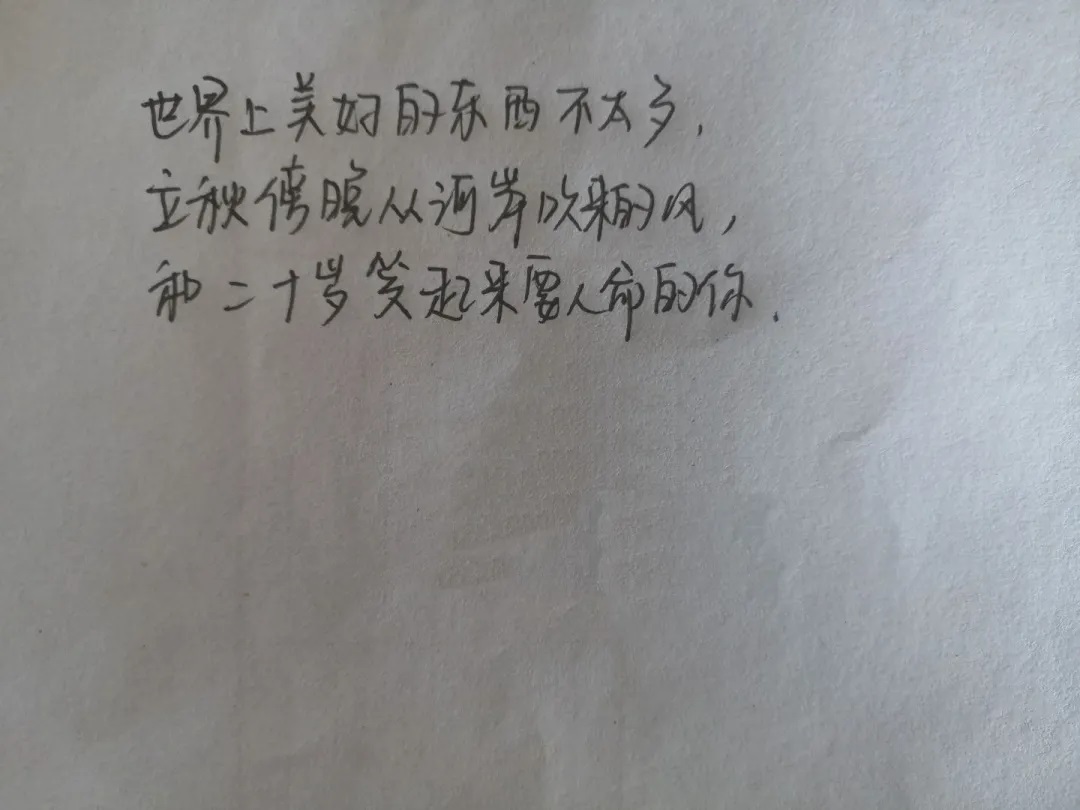 世界上美好的东西不太多.
立秋傍晚从河岸吹来的风,
和二十岁笑起来要人命的你.